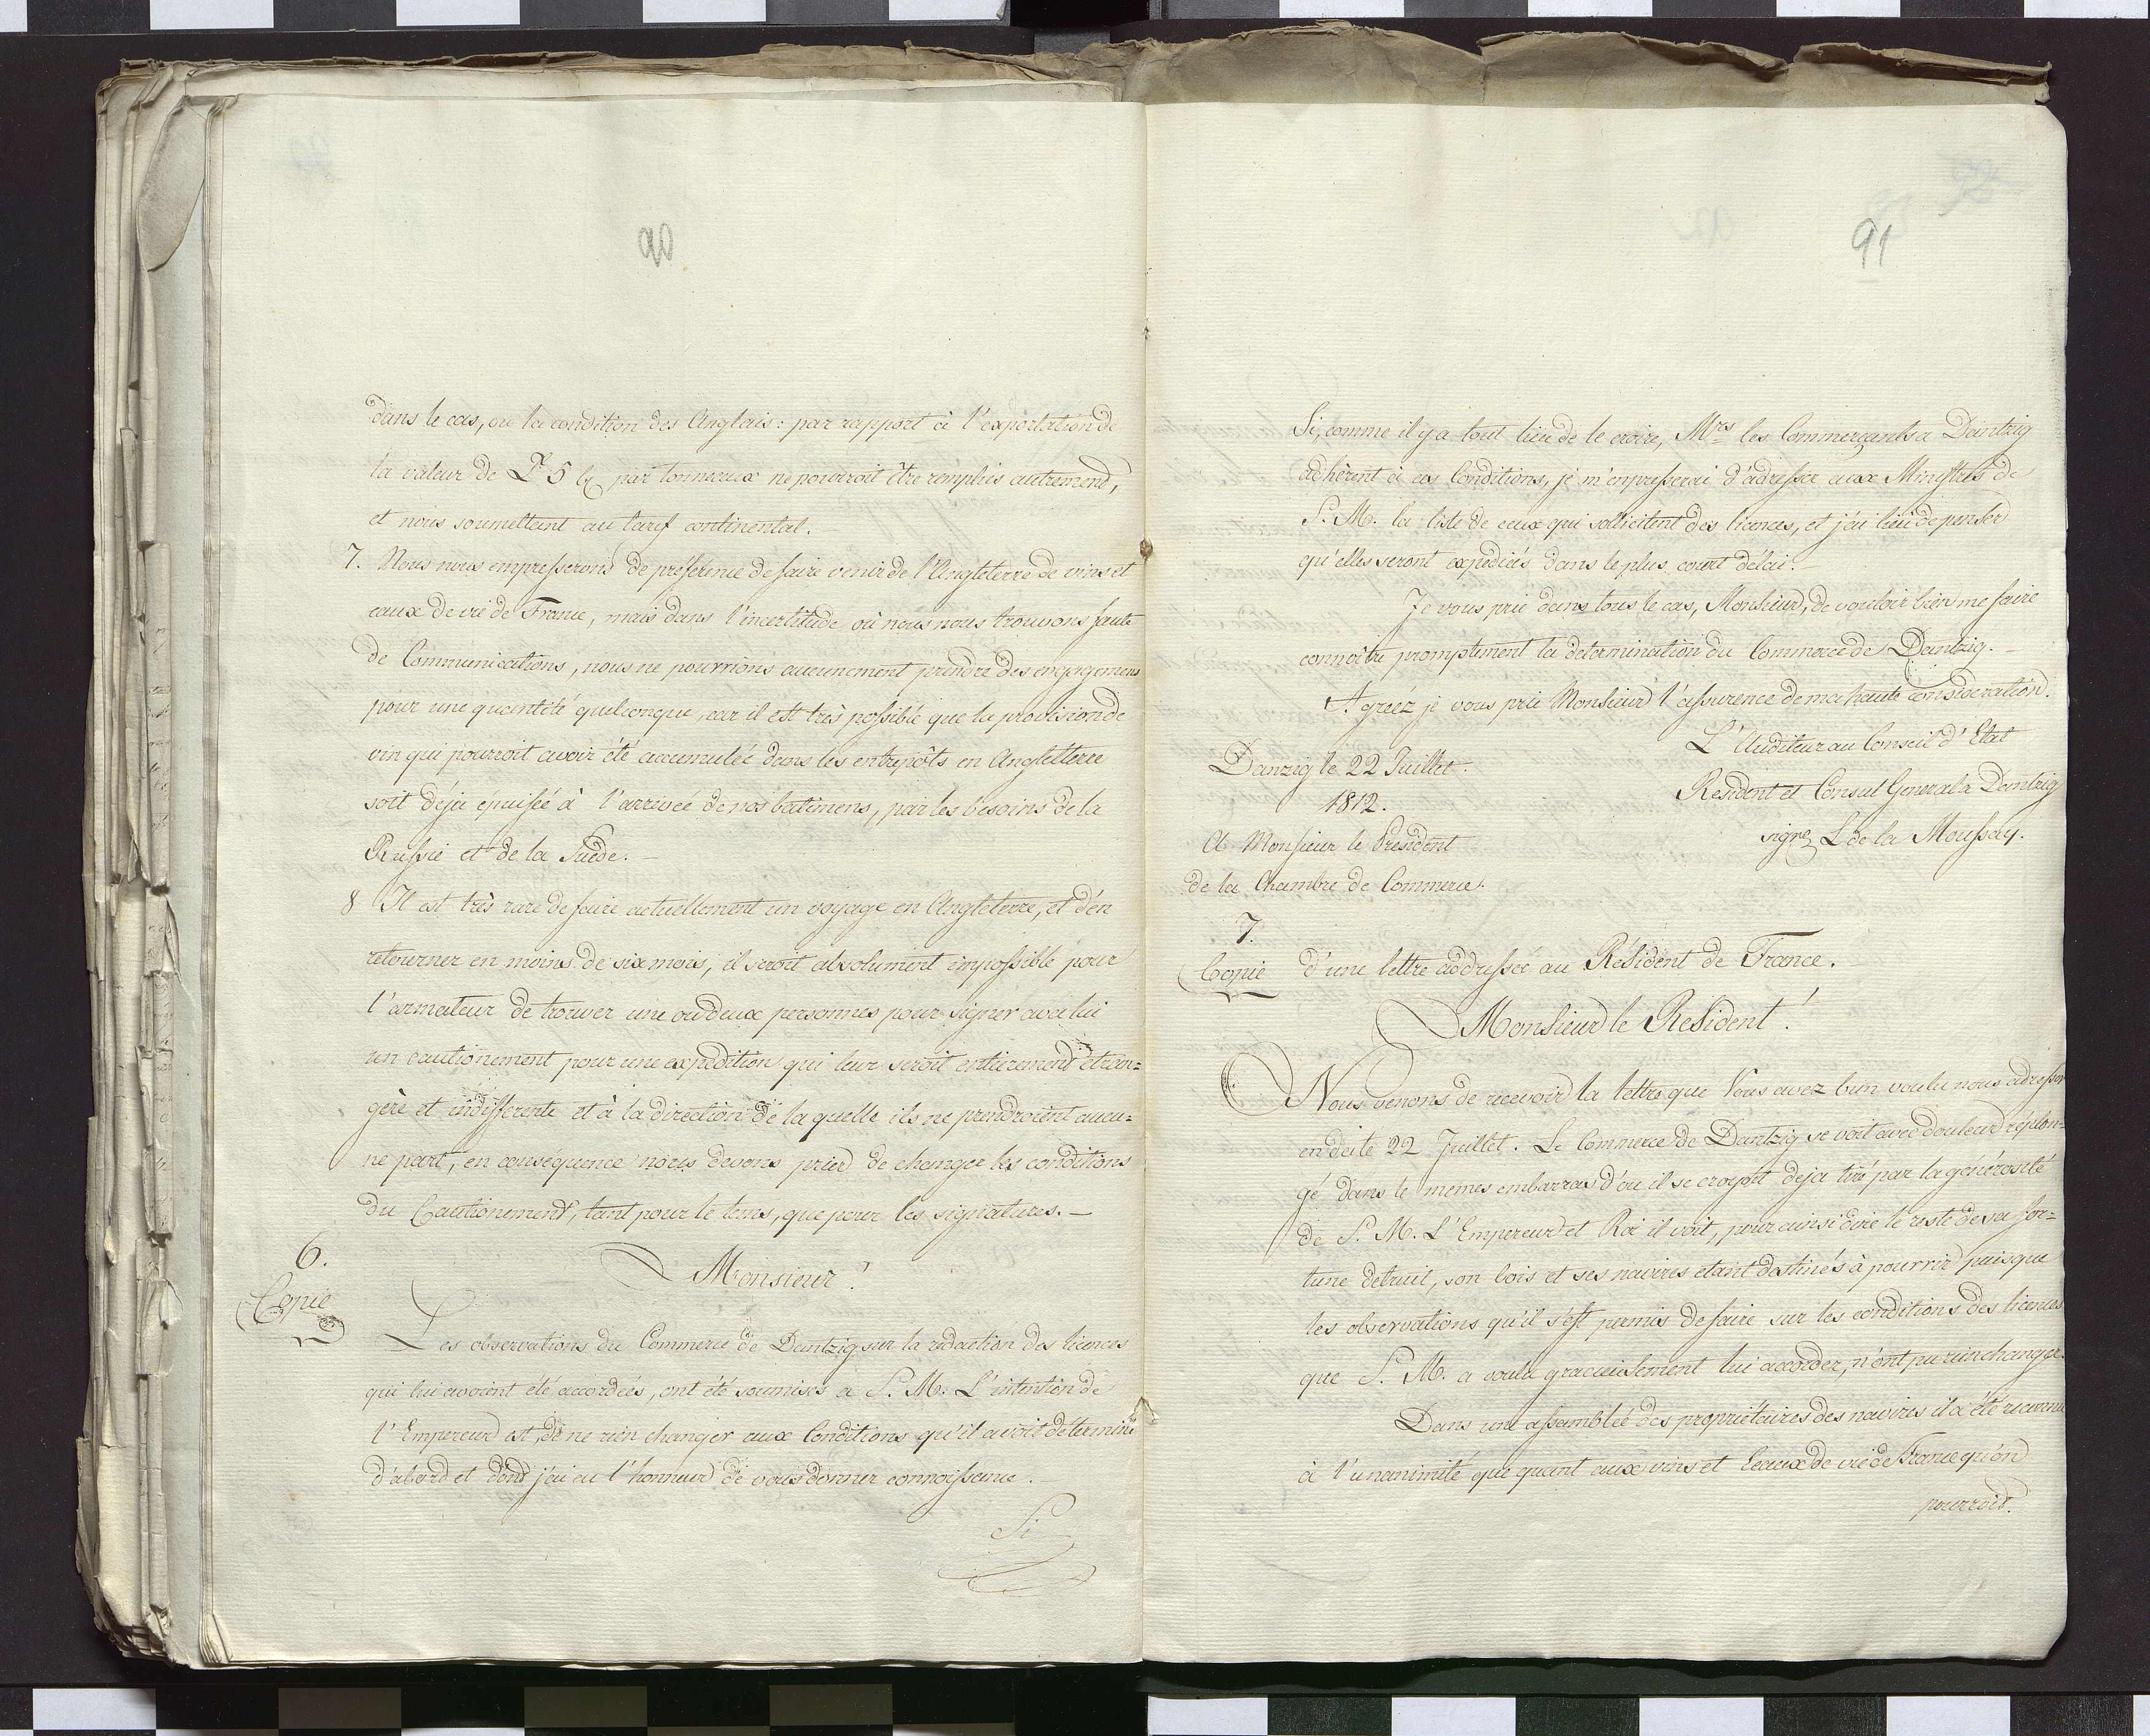 90
dans le cas, ou la condition des Anglais: par rapport à l'exportation de
la valeur de 5 par tonneaux ne pourroit être remplis autrement,
et nous soumettant au tarif continental.
7. Nous nous empresserons de préference de faire venir de l'Angleterre de vins et
eaux de vie de France, mais dans l'incertitude où nous nous trouvons faute
de Communications, nous ne pourrions aucunement prendre des engagemens
pour une quantité quelconque, car il est très possible que la provision de
vin qui pourroit avoir été accumulée dans les entrepôts en Angletterre
soit déja épuisée à l'arrivée de nos batimens, par les besoins de la
Russie et de la Suède.—
8 Il est très rare de faire actuellement un voyage en Angleterre, et d'en
retourner en moins de six mois, il seroit absolument impossible pour
l'armateur de trouver une ou deux personnes pour signer avec lui
un cautionement pour une expedition qui leur seroit entierement etran=
gère et indifferente et à la direction de la quelle ils ne prendroient aucu=
ne part, en consequence nous devons prier de changer les conditions
du Cautionement, tant pour le tems, que pour les signatures.—
6.
Copie
Monsieur!
Les observations du Commerce de Dantzig sur la redaction des licences
qui lui avoient été accordées, ont été soumises a S. M. L'intention de
l'Empereur est, de ne rien changer aux Conditions qu'il avoit déterminé
d'abord et dont j'ai eu l'honneur de vous donner connoissance.
Si
91
Si, comme il y a tout lieu de le croire, Mrs les Commerçants a Dantzig
adhèrent à ces Conditions, je m'empresserai d'adresser aux Ministres de
S. M. la liste de ceux qui sollicitent des licences, et j'ai lieu de penser
qu'elles seront expediés dans le plus court délai.—
Je vous prie dans tous le cas, Monsieur, de vouloir bien me faire
connoître promptement la determination du Commerce de Dantzig.—
Agreéz je vous prie Monsieur l'assurence de ma haute consideration.
L'Auditeur au Conseil d'Etat
Danzig le 22 Juillet.
Resident et Consul General a Dantzig
1812.
signé L de la Moussay.
A Monsieur le President
de la Chambre de Commerce.
7.
Copie d'une lettre addressée au Résident de France.
Monsieur le Resident!
Nous venons de recevoir la lettre que Vous avez bien voulu nous adresser
en date 22 Juillet. Le Commerce de Dantzig se voit avec douleur réplon=
gé dans le memes embarras d'ou il se croyoit deja tiré par la générosité
de S. M. L'Empereur et Roi il voit, pour ainsi dire le reste de sa for=
tune detruit, son bois et ses navires etant destinés à pourrir puisque
les observations qu'il s'est permis de faire sur les conditions des licences
que S. M. a voulu gracieusement lui accorder, n'ont pu rien changer.
Dans une assemblée des propriétaires des navires il a été reconnu
à l'unanimité que quant aux vins et Eeaux de vie de France qu'on
pourroit.